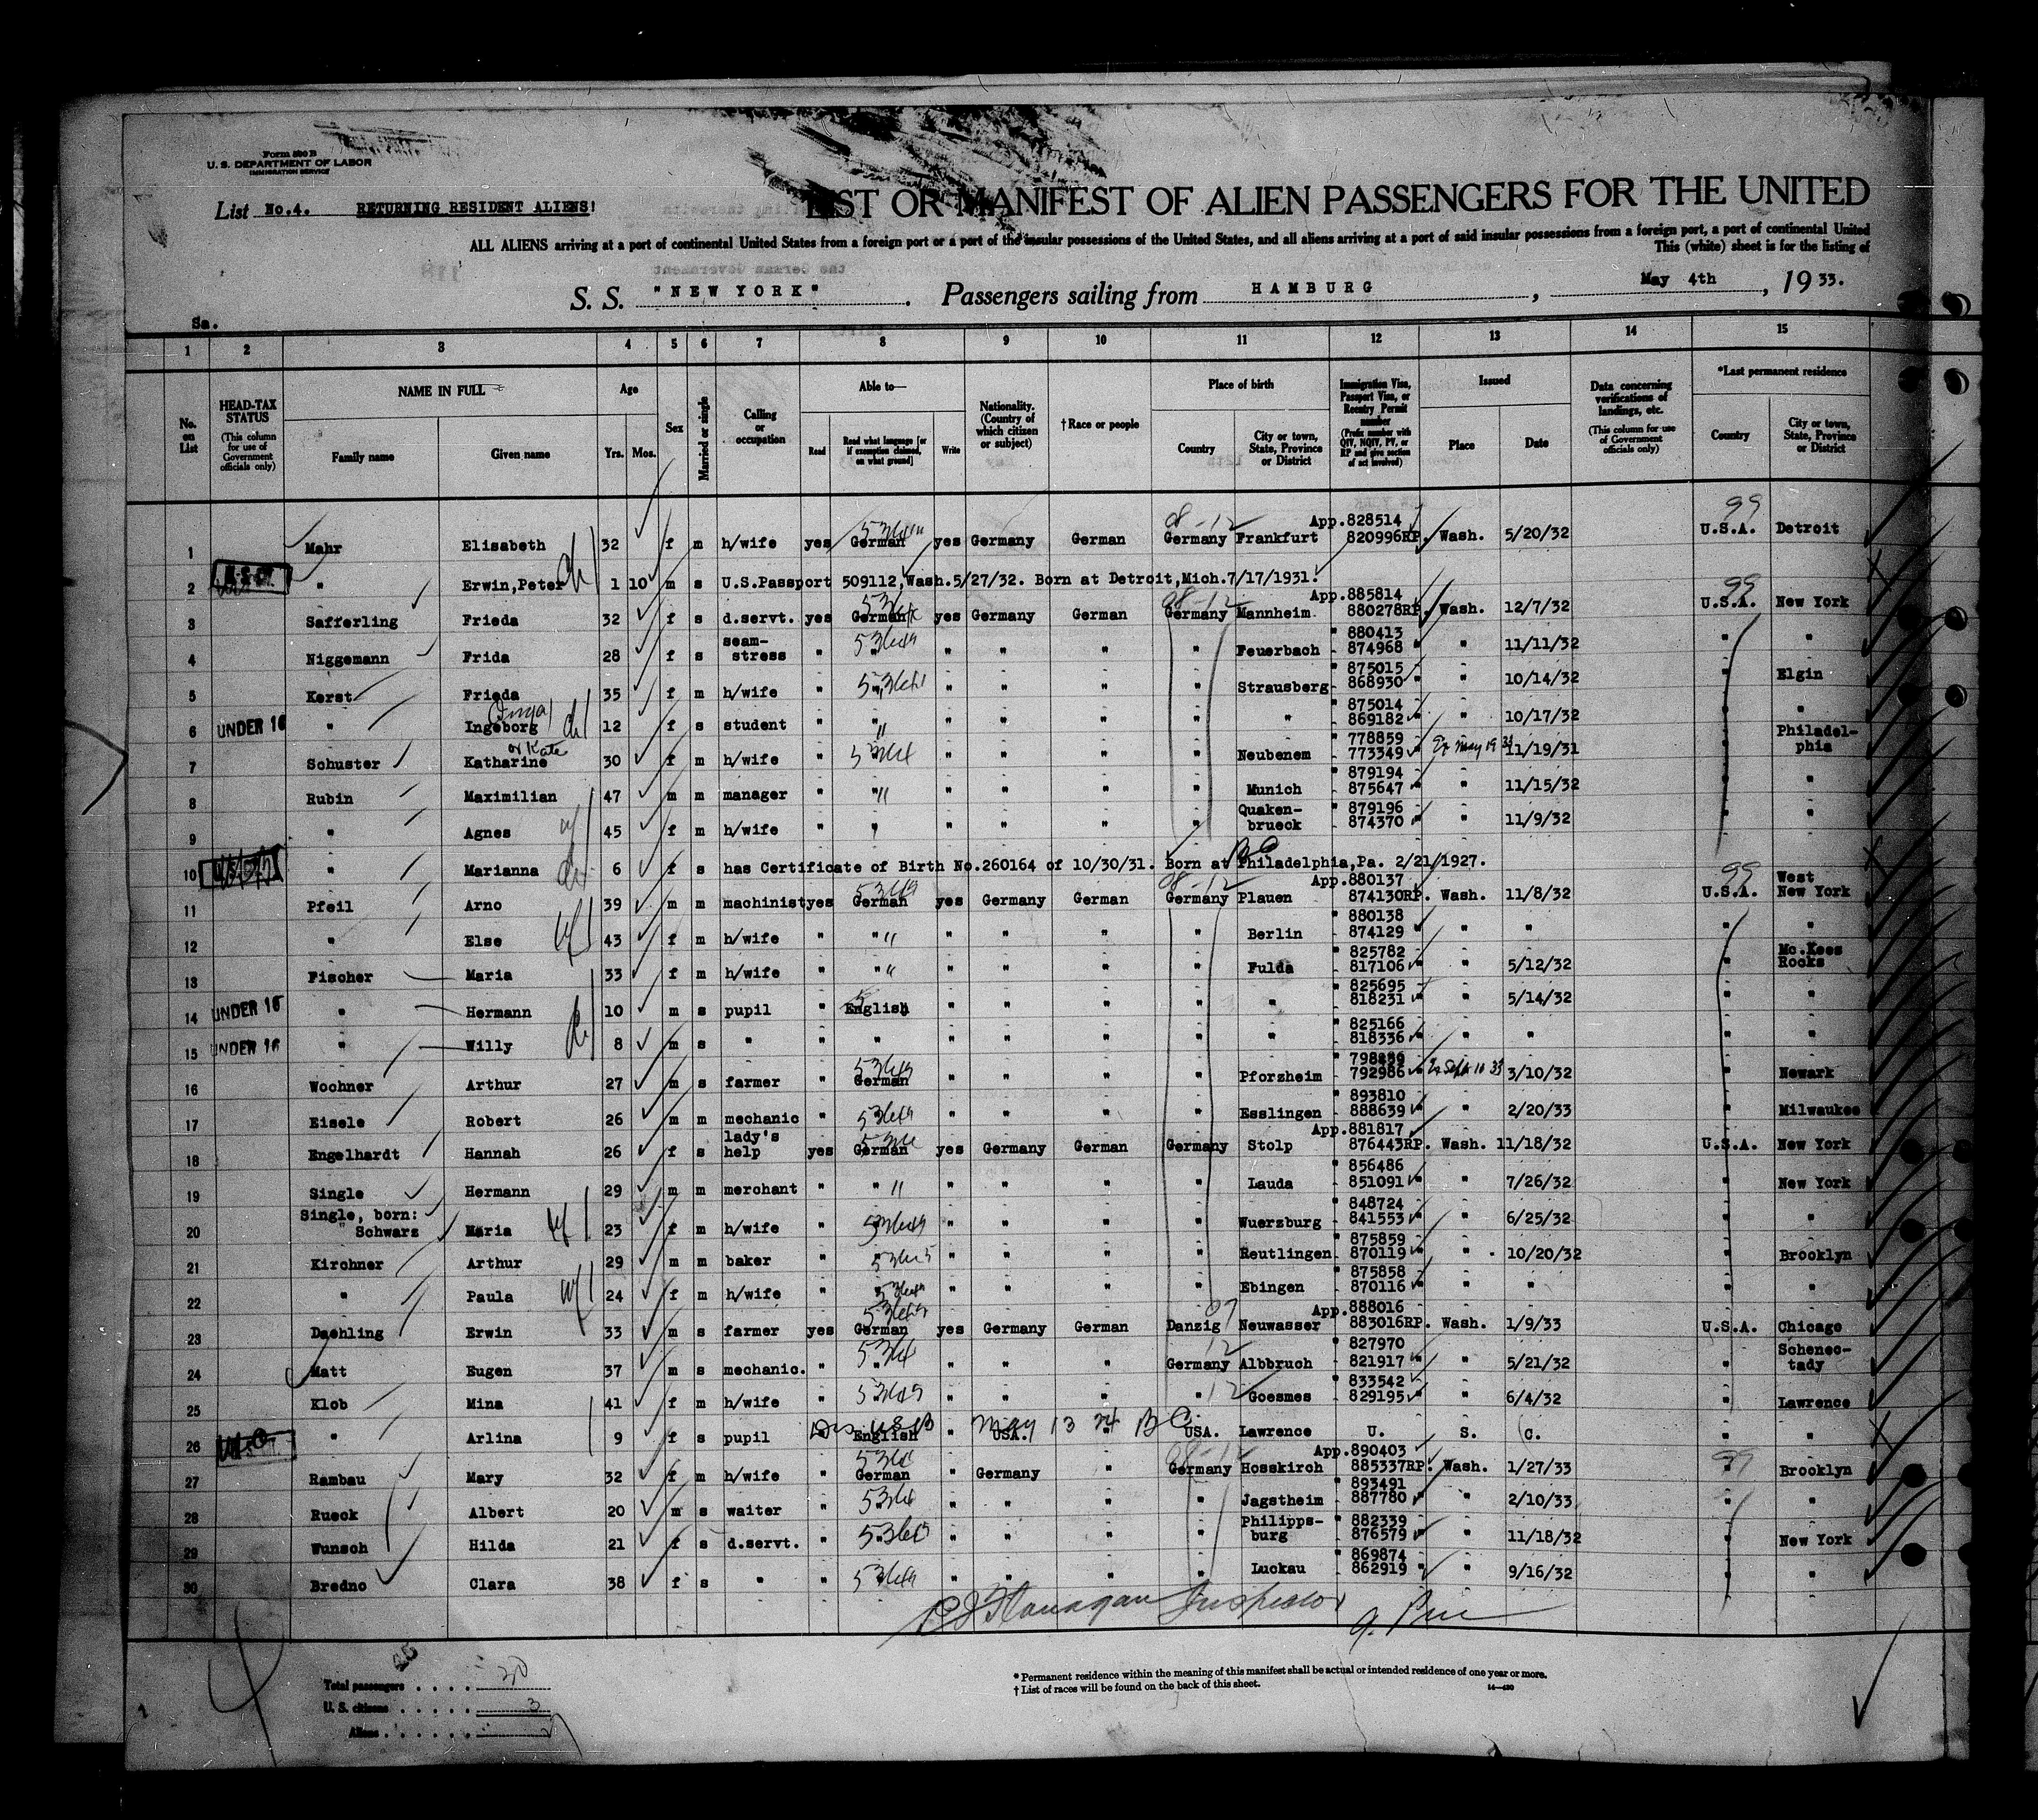 Form 500 B
U. S. DEPARTMENT OF LABOR
IMMIGRATION SERVICE
List No.4. RETURNING RESIDENT ALIENS!
LIST OR MANIFEST OF ALIEN PASSENGERS FOR THE UNITED
ALL ALIENS arriving at a port of continental United States from a foreign port or a port of the insular possessions of the United States, and all aliens arriving at a port of said insular possessions from a foreign port, a port of continental United
This (white) sheet is for the listing of
S. S. "NEW YORK". Passengers sailing from HAMBURG, May 4th, 1933.
Sa.
1 2 3 4 5 6 7 8 9 10 11 12 13 14 15
No. on List
HEAD-TAX STATUS (This column for use of Government officials only)
NAME IN FULL
Family name Given name
Age
Yrs. Mos.
Sex
Married or single
Calling or occupation
Able to—
Read Read what language [or if exemption claimed, on what ground] Write
Nationality. (Country of which citizen or subject)
† Race or people
Place of birth
Country City or town, State, Province or District
Immigration Visa, Passport Visa, or Reentry Permit number (Prefix number with QIV, NQIV, PV, or RP and give section of act involved)
Issued
Place Date
Data concerning verifications of landings, etc. (This column for use of Government officials only)
*Last permanent residence
Country City or town, State, Province or District
1 Mahr Elisabeth 32 f m h/wife yes German yes Germany German Germany Frankfurt App.828514 820996RP. Wash. 5/20/32 U.S.A. Detroit
2 " Erwin,Peter 1 10 m s U.S.Passport 509112,Wash.5/27/32. Born at Detroit,Mich.7/17/1931.
3 Safferling Frieda 32 f s d.servt. yes German yes Germany German Germany Mannheim App.885814 880278RP. Wash. 12/7/32 U.S.A. New York
4 Niggemann Frida 28 f s seam-stress " " " " " " Feuerbach " 880413 874968 " " 11/11/32 " "
5 Kerst Frieda 35 f m h/wife " " " " " " Strausberg " 875015 868930 " " 10/14/32 " Elgin
6 UNDER 16 " Ingeborg (Inga) 12 f s student " " " " " " " " 875014 869182 " " 10/17/32 " "
7 Schuster Katharine or Kate 30 f m h/wife " " " " " " Neubenem " 778859 773349 " 11/19/31 " Philadel-phia
8 Rubin Maximilian 47 m m manager " " " " " " Munich " 879194 875647 " " 11/15/32 " "
9 " Agnes 45 f m h/wife " " " " " " Quaken-brueck " 879196 874370 " " 11/9/32 " "
10 " Marianna 6 f s has Certificate of Birth No.260164 of 10/30/31. Born at Philadelphia,Pa. 2/21/1927.
11 Pfeil Arno 39 m m machinist yes German yes Germany German Germany Plauen App.880137 874130RP. Wash. 11/8/32 U.S.A. West New York
12 " Else 43 f m h/wife " " " " " " Berlin " 880138 874129 " " " " "
13 Fischer Maria 33 f m h/wife " " " " " " Fulda " 825782 817106 " " 5/12/32 " Mc.Kees Rocks
14 UNDER 16 " Hermann 10 m s pupil " English " " " " " " 825695 818231 " " 5/14/32 " "
15 UNDER 16 " Willy 8 m s " " " " " " " " " 825166 818336 " " " " "
16 Wochner Arthur 27 m s farmer " German " " " " Pforzheim " 792986 " 3/10/32 " Newark
17 Eisele Robert 26 m m mechanic " " " " " " Esslingen " 893810 888639 " " 2/20/33 " Milwaukee
18 Engelhardt Hannah 26 f s lady's help yes German yes Germany German Germany Stolp App.881817 876443RP. Wash. 11/18/32 U.S.A. New York
19 Single Hermann 29 m m merchant " " " " " " Lauda " 856486 851091 " " 7/26/32 " New York
20 Single, born: Schwarz Maria 23 f m h/wife " " " " " " Wuerzburg " 848724 841553 " " 6/25/32 " "
21 Kirchner Arthur 29 m m baker " " " " " " Reutlingen " 875859 870119 " " 10/20/32 " Brooklyn
22 " Paula 24 f m h/wife " " " " " " Ebingen " 875858 870116 " " " " "
23 Daehling Erwin 33 m s farmer yes German yes Germany German Danzig Neuwasser App.888016 883016RP. Wash. 1/9/33 U.S.A. Chicago
24 Matt Eugen 37 m s mechanic. " " " " " Germany Albbruch " 827970 821917 " " 5/21/32 " Schenec-tady
25 Klob Mina 41 f m h/wife " " " " " " Goesmes " 833542 829195 " " 6/4/32 " Lawrence
26 " Arlina 9 f s pupil English USA. May 13 24 B C USA. Lawrence U. S. C.
27 Rambau Mary 32 f m h/wife " German " Germany " Germany Hosskirch App.890403 885337RP. Wash. 1/27/33 " Brooklyn
28 Rueck Albert 20 m s waiter " " " " " " Jagstheim " 893491 887780 " " 2/10/33 " "
29 Wunsch Hilda 21 f s d.servt. " " " " " " Philipps-burg " 882339 876579 " " 11/18/32 " New York
30 Bredno Clara 38 f s " " " " " " " Luckau " 869874 862919 " " 9/16/32 " "
Flanagan Inspector
Total passengers . . . . 30
U. S. citizens . . . . . 3
Aliens . . . . . .
* Permanent residence within the meaning of this manifest shall be actual or intended residence of one year or more.
† List of races will be found on the back of this sheet.
14—430